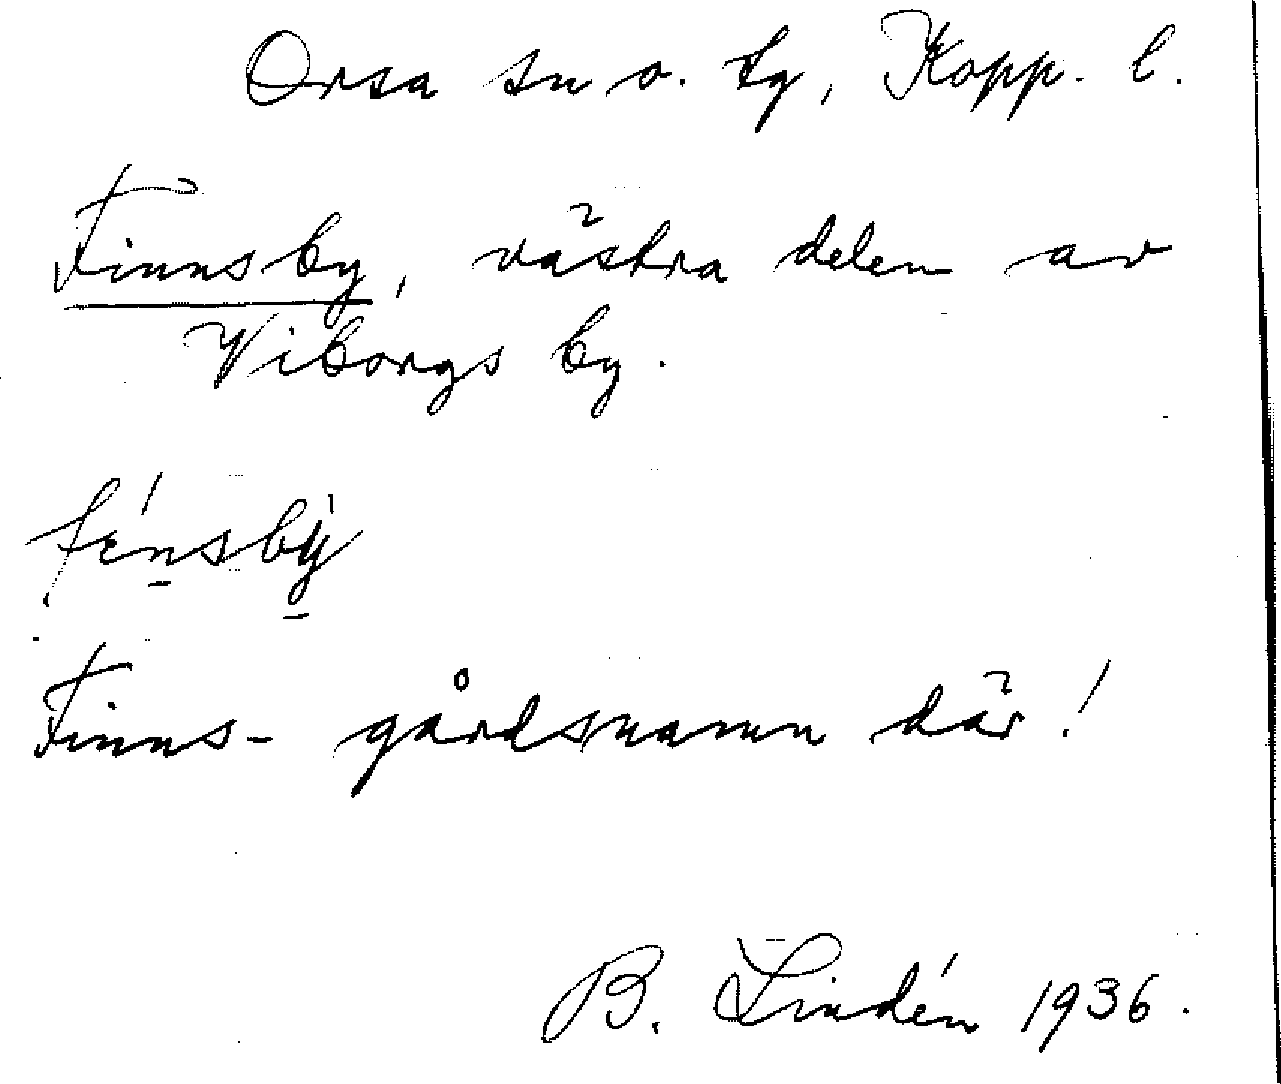 Orsa sn o. tg, Kopp. l.
Finnsby, västra delen av
Viborgs by.
Finns- gårdsnamn där!
B. Lindén 1936.